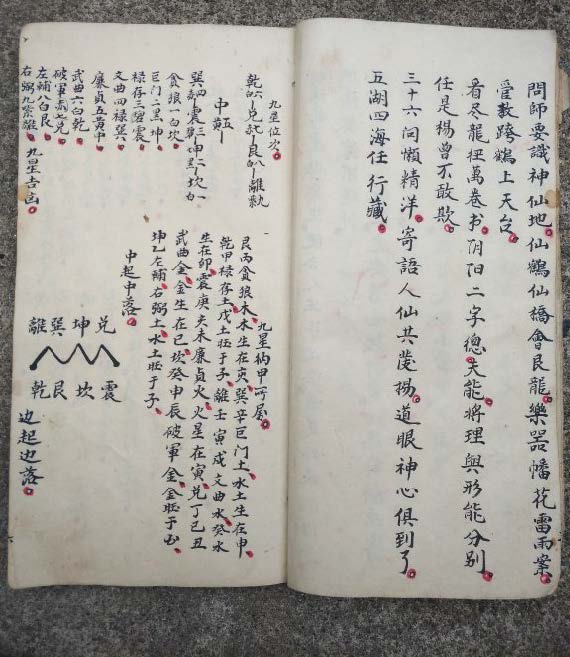 問師要識神仙地仙鶴仙橋會艮龍樂器幡花雷雨案
受教跨鶴上天台
看尽龍徑萬卷书阴阳二字總夫能将理與形能分别
任是楊曾不敢欺
三十六问懒精洋寄語人仙共發揚道眼神心俱到了
五湖四海任行藏
九星位次
乾六白兑七赤艮八白離九紫
中五黄
巽四震三坤二坎一白
貪狼一白坎
巨門二黑坤
禄存三碧震
文曲四緑巽
廉貞五黄中
武曲六白乾
破軍七赤兑
左輔八白艮
右弼九紫離
九星吉凶
九星纳甲所屬
艮丙貪狼木木生在亥巽辛巨门土水土生在申
乾甲禄存土戊土旺于子離壬寅戍文曲水癸水
生在卯震庚亥未廉貞火火星在寅兑丁已丑
武曲金金生在已坎癸申辰破軍金金旺于酉
坤乙左輔右弼土水土旺于子
中起中落
離巽坤兑
乾艮坎震
边起边落